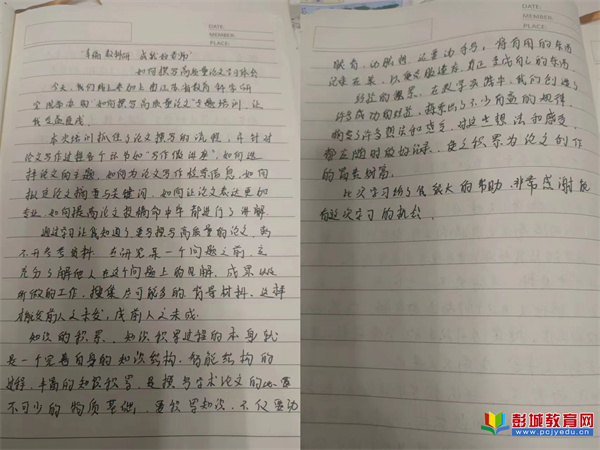 DATE:
MEMBER:
PLACE:
如何撰写高质量论文学习体会
今天,我们线上参加了由江苏省教育科学研
究院举办的“如何撰写高质量论文”专题培训,让
我受益匪浅。
本次培训抓住了论文撰写的流程,并针对
论文写作过程各个环节如“写作做准备”,如何选
择论文的主题,如何为论文写作检索信息,如何
拟定论文摘要与关键词,如何让论文表达更加
专业,如何提高论文投稿命中率都进行了讲解。
通过学习让我知道了要写撰写高质量的论文,离
不开参考资料。在研究某一个问题之前,应
充分了解他人在这个问题上的见解、成果以及
所做的工作,搜集尽可能多的背景材料,这样
才能发前人之未发,成前人之未成。
知识的积累。知识积累过程的本身就
是一个完善自身的知识结构、智能结构的
过程,丰富的知识积累,是撰写学术论文的必需
不可少的物质基础,要积累知识,不仅要动
DATE:
MEMBER:
PLACE:
眼看,动脑想,还要动手写,将有用的东西
记录在案,以便反复温习,真正变成自己的东西。
经验的积累。在教学实践中,我们创造了
许多成功的经验,探索出了不少有益的规律,
萌发了许多想法和感受,对这些想法和感受,
都应随时做好记录,使之积累为论文创作
的宝贵财富。
此次学习给了我很大的帮助,非常感谢能
有这次学习的机会。
彭城教育网
www.pcjyedu.cn